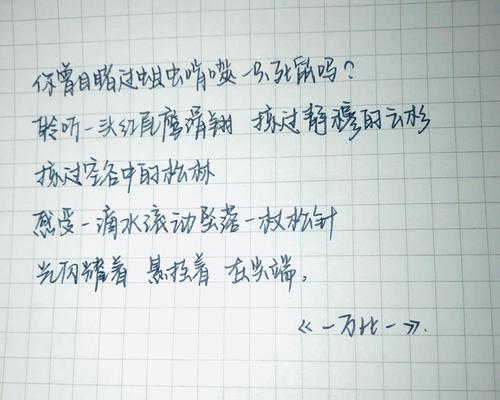 你曾目睹过蛆虫啃噬一只死鼠吗？
聆听一头红尾鹰滑翔 掠过静穆的云杉
掠过空谷中的松林
感受一滴水流动坠落一枚松针
光闪耀着 悬挂着 在尖端。
《一万比一》.